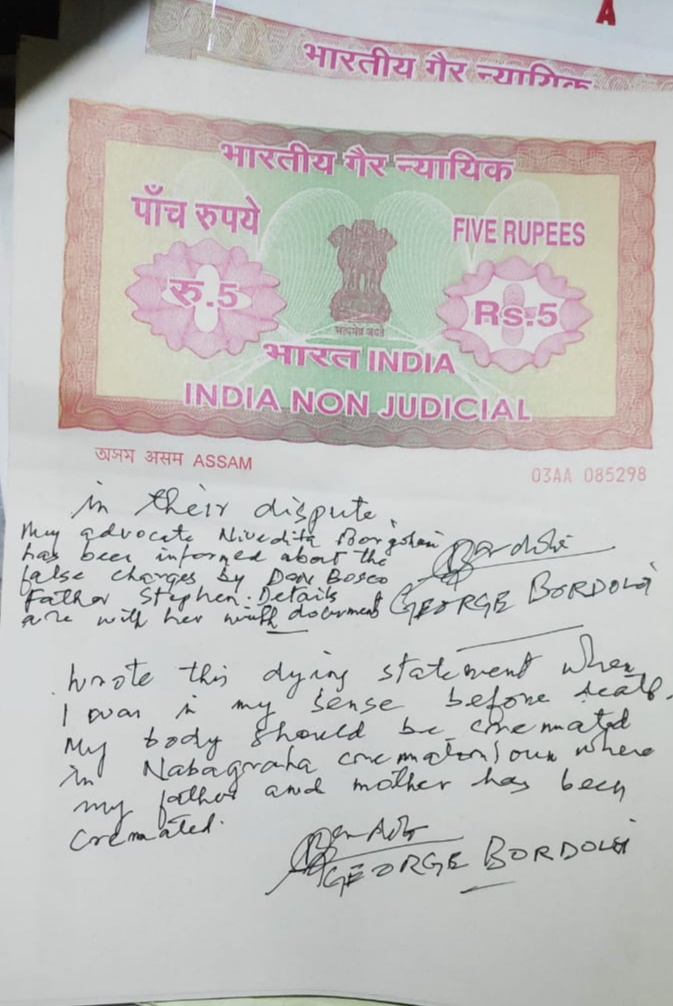 A
भारतीय गैर न्यायिक
भारतीय गैर न्यायिक
पाँच रुपये
FIVE RUPEES
रु.5
Rs.5
सत्यमेव जयते
भारत INDIA
INDIA NON JUDICIAL
অসম असम ASSAM
03AA 085298
in their dispute.
My advocate Nivedita Borgohain
has been informed about the
false charges by Don Bosco
Father Stephen. Details
are with her with document
GEORGE BORDOLOI
Wrote this dying statement when
I was in my sense before death.
My body should be cremated
in Nabagraha where
my father and mother has been
cremated.
GEORGE BORDOLOI